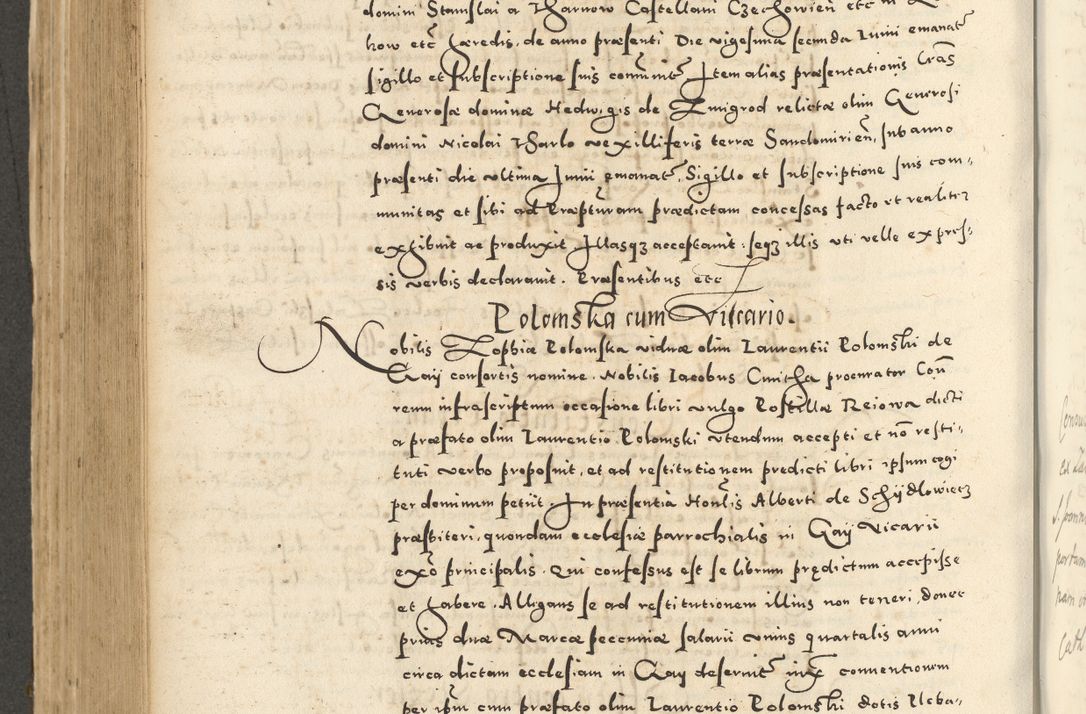 domini Stanslai a Tharnow Castellani Czechovien etc in
kow etc hæredis, de anno præsenti Die vigesima secunda Iunii emanat
sigillo et subscriptione suis comūnit Item alias præsentationis Lr̄as
Generosæ dominæ Hedwigis de Zmigrod relictæ olim Generosi
domini Nicolai Tharlo vexilliferis terræ Sandomirien̄, sub anno
præsenti die ultima Iunii emanat, Sigillo et subscriptione suis com-
munitas et sibi ad Præpturam prædictam concessas facto et realitr
exhibuit ac produxit. Illasqz acceptavit, seqz illis uti velle expres-
sis verbis declaravit. Præsentibus etc
Polomska cum Vicario.
Nobilis Zophiæ Polomska viduæ olim Laurentii Polomski de
Gay consortis nomine. Nobilis Iacobus Cmitha procurator Con̄
reum infrascriptum occasione libri vulgo Postillæ Reiowa dicti
a præfato olim Laurentio Polomski utendum accepti et nō resti-
tuti verbo proposuit, et ad restitutionem predicti libri ipsum cogi
per dominum petiit. In præsentia Honlis Alberti de Schijdlowiecz
præsbiteri, quondam ecclesiæ parrochialis in Gay Vicarii
exō principalis. Qui confessus est se librum prędictum accepisse
et habere. Alligans se ad restitutionem illius non teneri, donec
prius duæ Marcæ peccuniæ salarii unius quartalis anni
circa dictam ecclesiam in Gay deservit iux conventionem
per ipm cum præfato olim Laurentio Polomski dotis